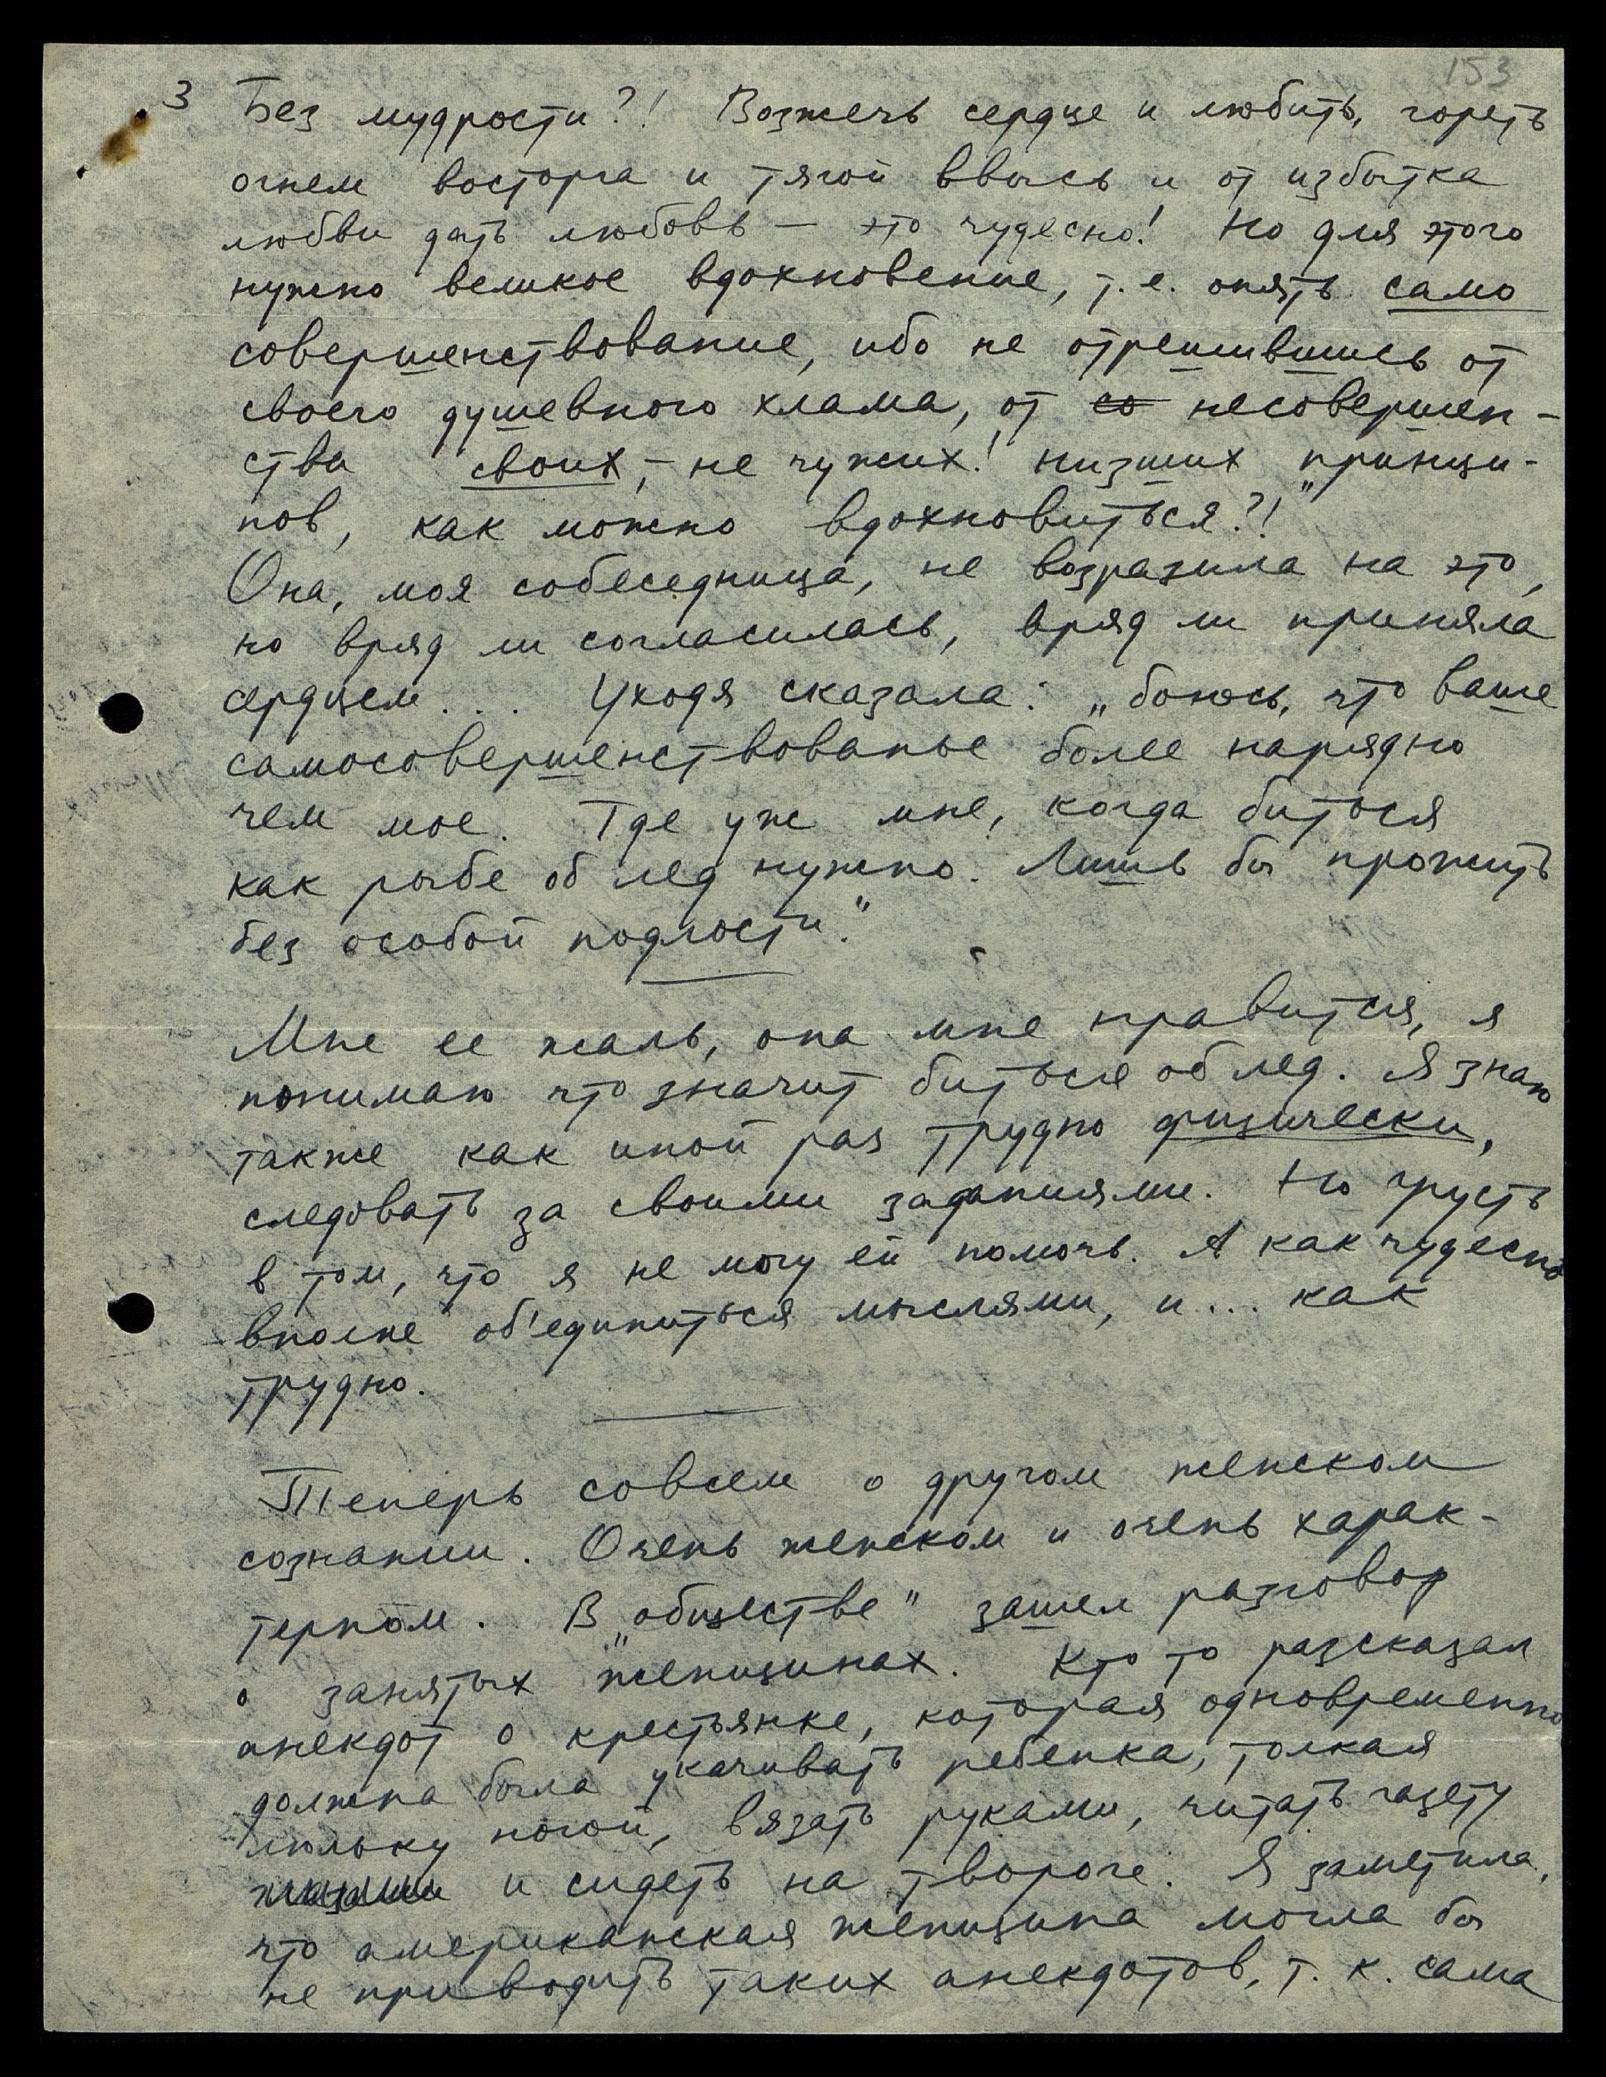 153
3 Без мудрости?! Возжечь сердце и любить, гореть
огнем восторга и тягой ввысь и от избытка
любви дать любовь — это чудесно! Но для этого
нужно великое вдохновение, т.е. опять само
совершенствование, ибо не отрешившись от
своего душевного хлама, от со несовершен-
ства своих, – не чужих! низших "принци-
пов, как можно вдохновиться?!
Она, моя собеседница, не возразила на это,
но вряд ли согласилась, вряд ли приняла
сердцем... Уходя сказала: „боюсь, что ваше
самосовершенствованье более нарядно
чем мое. Где уж мне, когда биться
как рыбе об лед нужно. Лишь бы прожить
без особой подлости."
Мне ее жаль, она мне нравится, я
понимаю что значит биться об лед. Я знаю
также как иной раз трудно физически,
следовать за своими заданиями. Но грусть
в том, что я не могу ей помочь. А как чудесно
вполне об'единиться мыслями, и... как
трудно.
Теперь совсем о другом женском
сознании. Очень женском и очень харак-
терном. В „обществе" зашел разговор
о „занятых" женщинах. Кто то разсказал
анекдот о крестьянке, которая одновременно
должна была укачивать ребенка, толкая
люльку ногой, вязать руками, читать газету
глазами и сидеть на твороге. Я заметила,
что американская женщина могла бы
не приводить таких анекдотов, т. к. сама